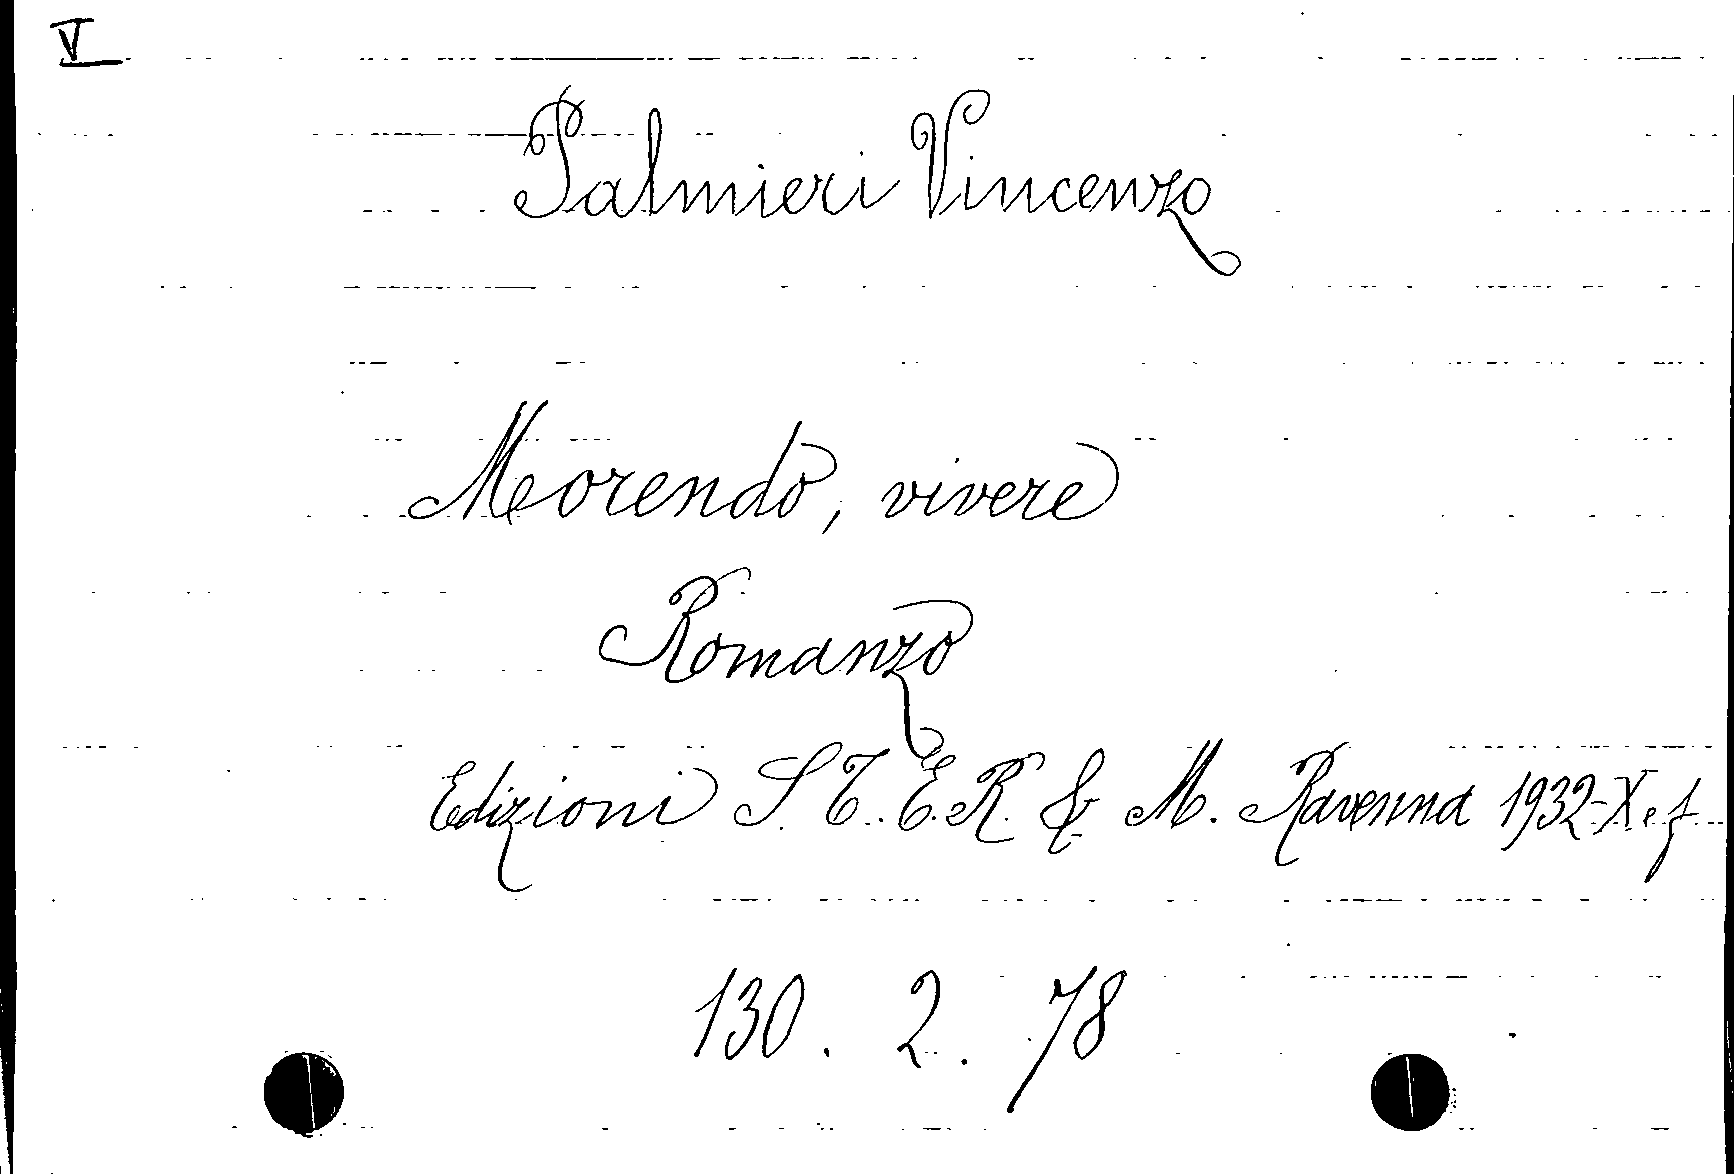 V
Palmieri Vincenzo
Morendo, vivere
Romanzo
Edizioni S.T.E.R. & M. Ravenna 1932-X e.f.
130. 2. 78